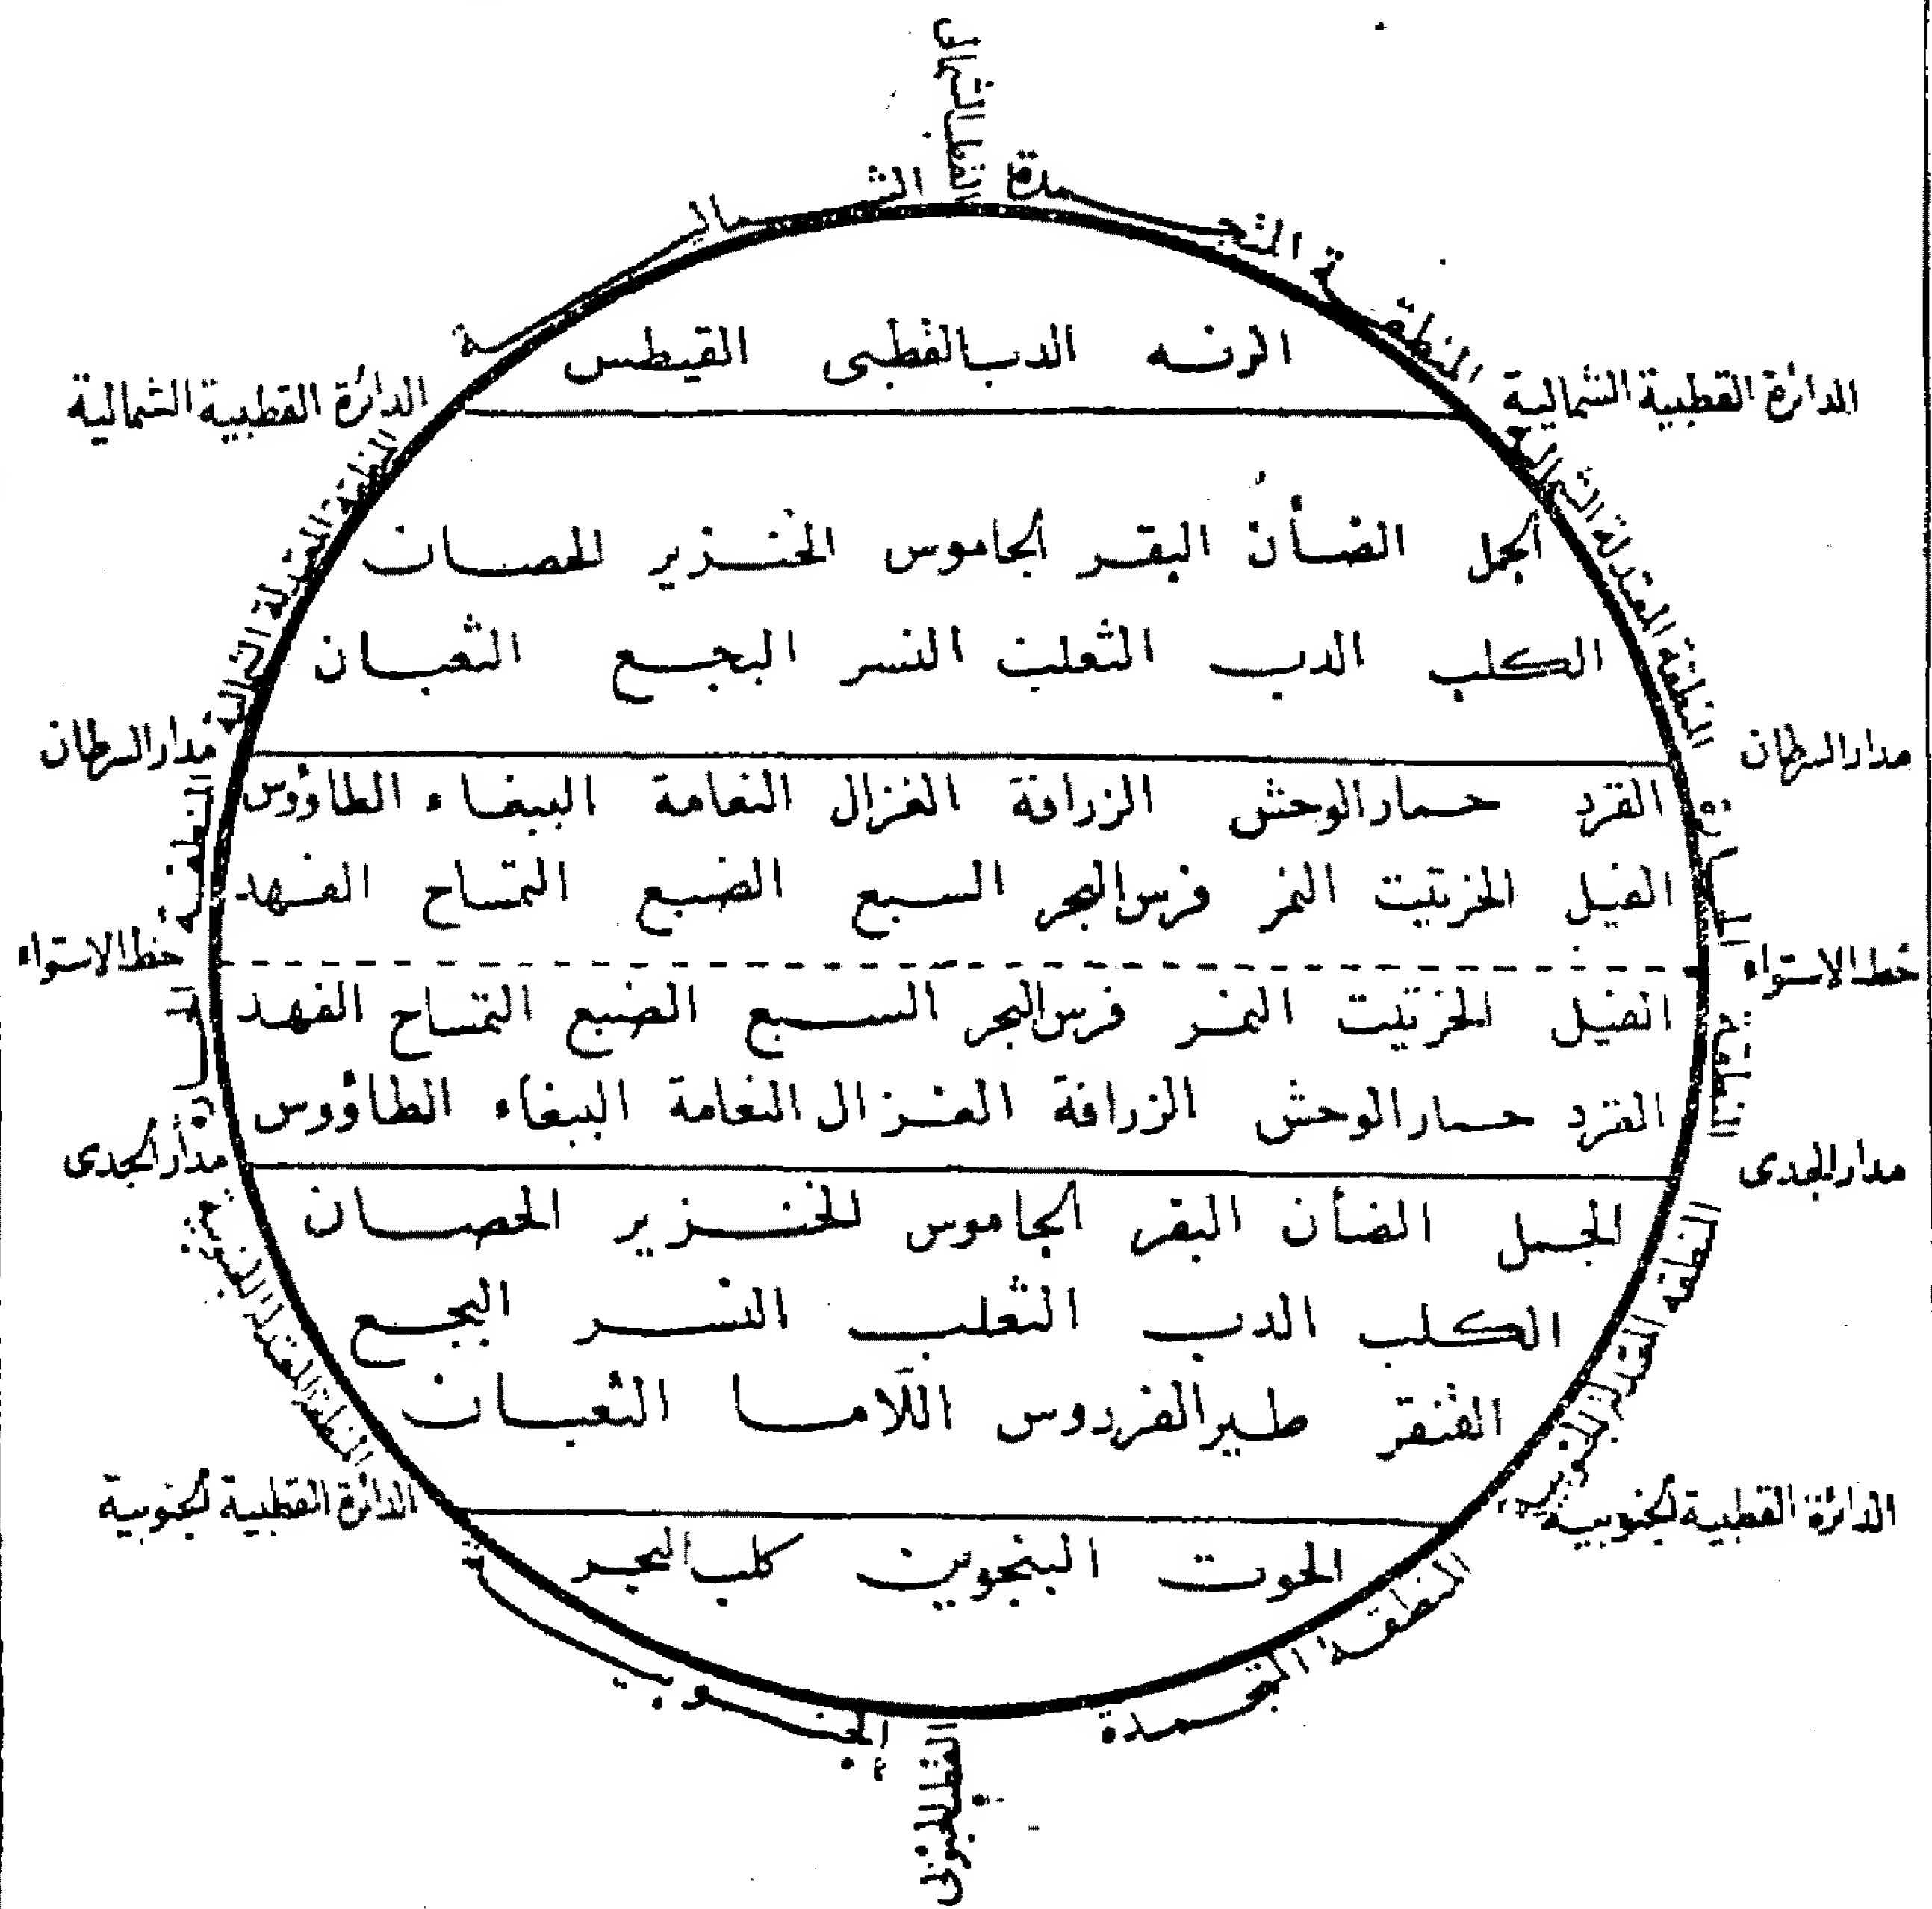 القطب الشمالى
المنطقة المتجمدة الشمالية
الرنه الدب القطبى القيطس
الدائرة القطبية الشمالية
الدائرة القطبية الشمالية
المنطقة المعتدلة الشمالية
المنطقة المعتدلة الشمالية
الجمل الضأن البقر الجاموس الخنزير الحصان
الكلب الدب الثعلب النسر البجع الثعبان
مدار السرطان
مدار السرطان
القرد حمار الوحش الزرافة الغزال النعامة الببغاء الطاؤوس
الفيل الخرتيت النمر فرس البحر السبع الضبع التمساح الفهد
خط الاستواء
خط الاستواء
المنطقة الحارة
المنطقة الحارة
الفيل الخرتيت النمر فرس البحر السبع الضبع التمساح الفهد
القرد حمار الوحش الزرافة الغزال النعامة الببغاء الطاؤوس
مدار الجدى
مدار الجدى
المنطقة المعتدلة الجنوبية
المنطقة المعتدلة الجنوبية
الجمل الضأن البقر الجاموس الخنزير الحصان
الكلب الدب الثعلب النسر البجع
القنقر طير الفردوس اللاما الثعبان
الدائرة القطبية الجنوبية
الدائرة القطبية الجنوبية
الحوت البنجوين كلب البحر
المنطقة المتجمدة الجنوبية
القطب الجنوبى